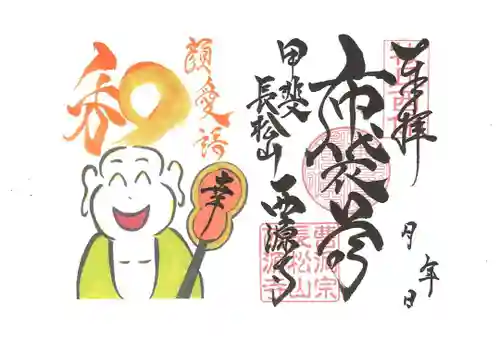 奉拝
年
月 日
布袋尊
甲斐
長松山
西源寺
曹洞宗
長松山
西源寺
和
顔愛語
幸